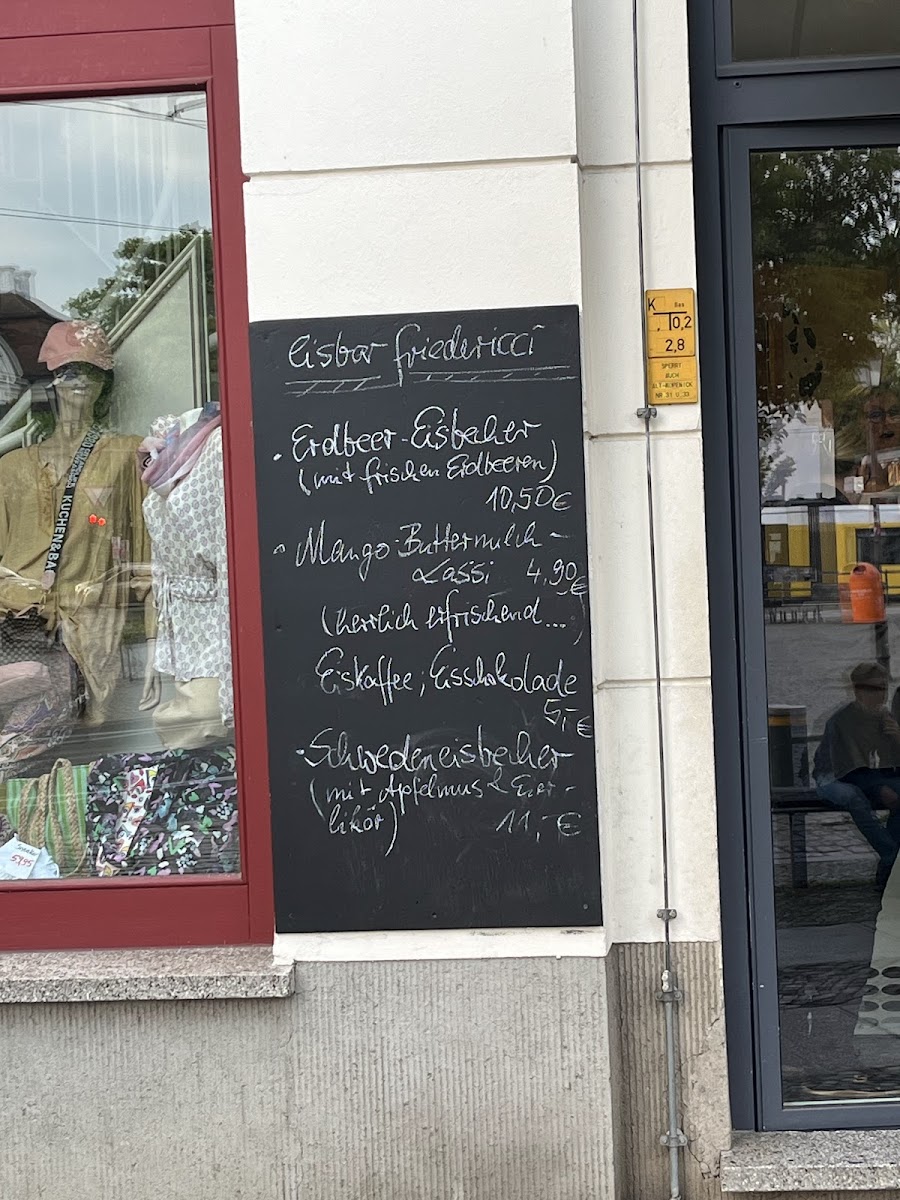 Eisbar Friedericci
• Erdbeer-Eisbecher
(mit frischen Erdbeeren)
10,50€
• Mango-Buttermilch-
Lassi 4,90€
(herrlich erfrischend...)
Eiskaffee, Eisschokolade
5,-€
• Schwedeneisbecher
(mit Apfelmus & Eier-
likör) 11,-€
K Gas
10,2
2,8
SPERRT
AUCH
ALT-KÖPENICK
NR 31 U. 33
KUCHEN&BA